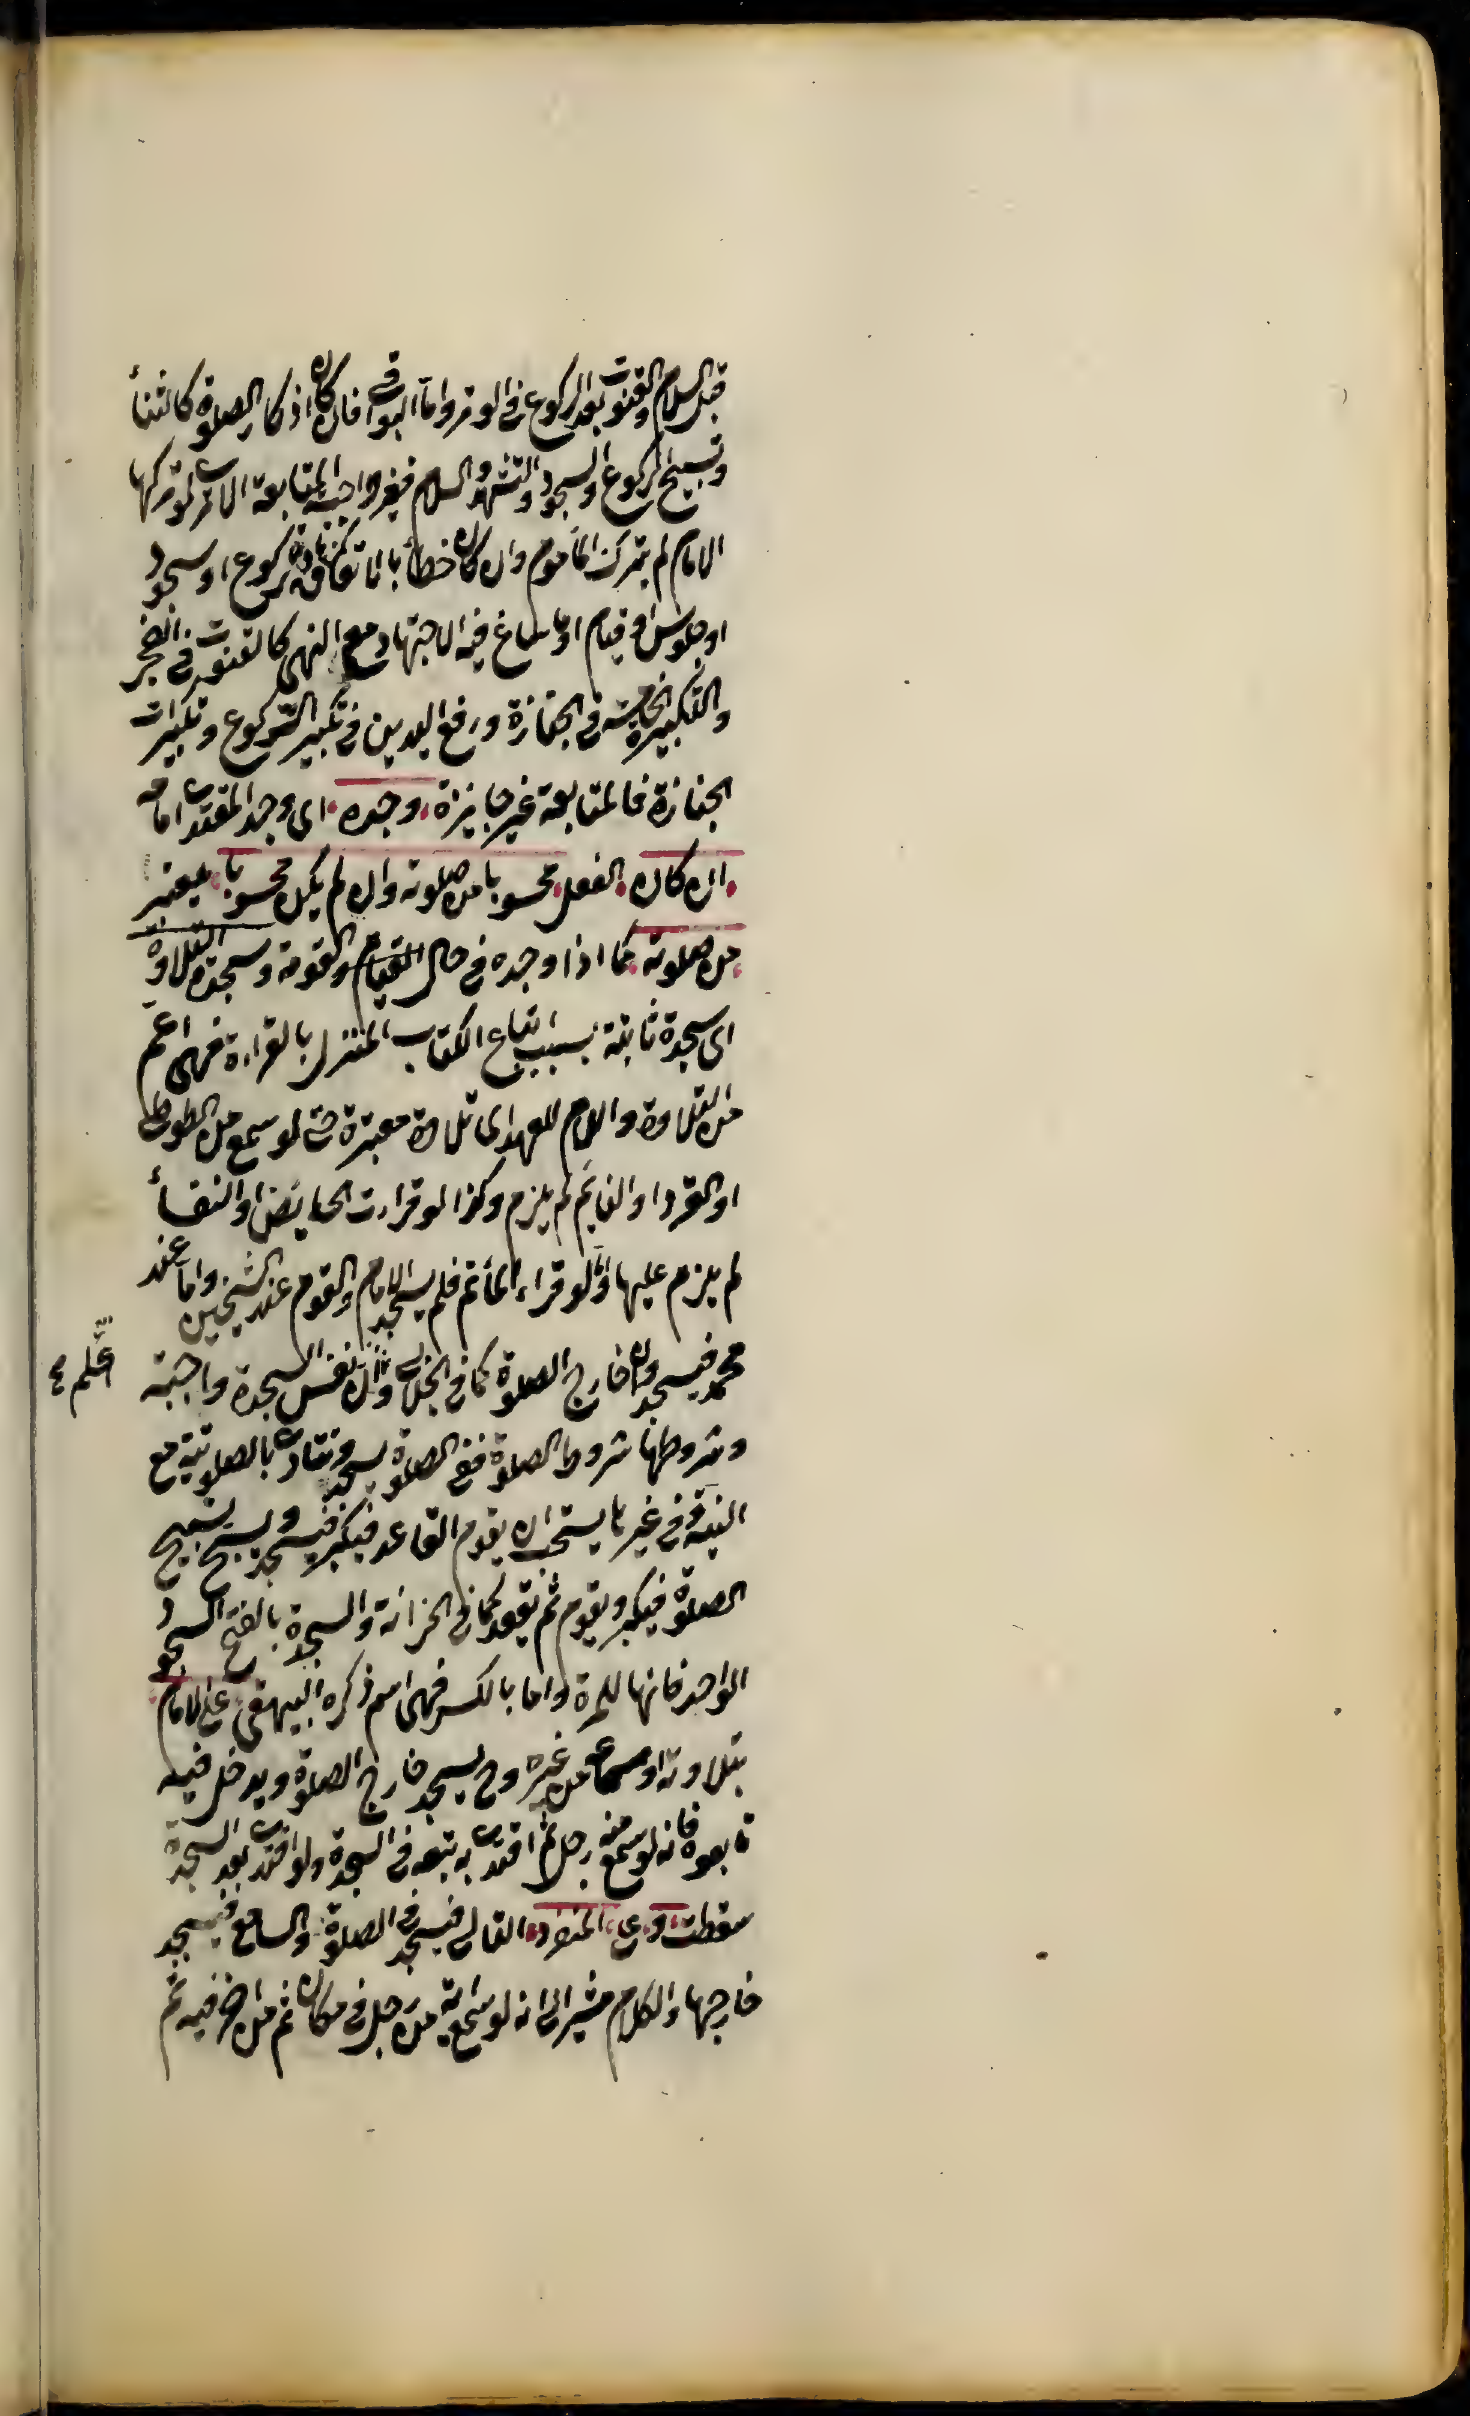 قبل السلام والقنوت بعد الركوع في الوتر واما البواقي فان كان اذكار الصلوة كالثنأ
وتسبيح الركوع والسجود والتشهد والسلام فغير واجب المتابعة لو تركها
الامام لم يترك المأموم وان كان خطأ بالاتفاق ركوع او سجود
او جلوس او قيام او ما ساغ فيه الاجتهاد مع النهى كالقنوت في الفجر
والتكبيرة الخامسة في الجنازة ورفع اليدين في تكبير الركوع وتكبيرات
الجنازة فالمتابعة غير جايزة وجده اى وجد المقتدى امامه
ان كان الفعل محسوبا من صلوته وان لم يكن محسوبا
من صلوته كما اذا وجده في حال القيام والقومة وسجدة التلاوة
اى سجدة ثابتة بسبب اتباع الكتاب المنزل بالقراءة فهى اعم
من التلاوة واللام للعهد اى تلاوة معتبرة حتى لو سمع من الطوطى
او القرد او النايم لم يلزم وكذا لو قراءت الحايض او النفسأ
لم يلزم عليها ولو قراء المأتم فلم يسجد الامام والقوم عند الشيخين واما عند
محمد فيسجدون خارج الصلوة كما في الجلالى وان نفس السجدة واجبة
وشروطها شروط الصلوة ففي الصلوة يسجد وتتادى بالصلوتية مع
النية وفي غيرها يستحب ان يقوم القاعد فيكبر فيسجد ويسبح تسبيح
الصلوة فيكبر ويقوم ثم يقعد كما في الخزانة والسجدة بالفتح السجود
الواحد فانها للمرة واما بالكسر فهى اسم ذكره البيهقى على الامام
بتلاوته او سماعه من غيره وح يسجد خارج الصلوة ويدخل فيه
تابعوه فانه لو سمع منه رجل ثم اقتدى به تبعه في السجدة ولو اقتدى بعد السجدة
سقطت وعلى المنفرد التالى فيسجد في الصلوة والسامع فيسجد
خارجها والكلام مشير الى انه لو سمع اية من رجل في مكان ثم من اخر فيه ثم